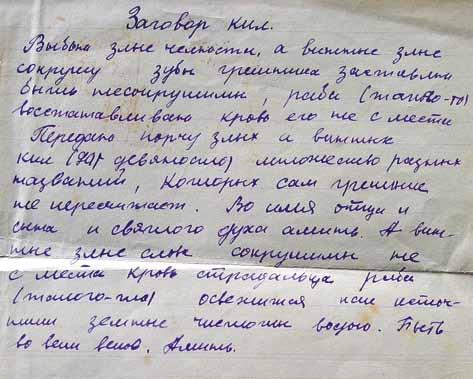 Заговор кил.
Выбьем злые челюсти, а винтные злые
сокрушу зубы грешника заставлю
быть несокрушимы, раба (такого-то)
восстанавливаю кровь его же с места
Передано порчу злых и винтных
кил (99 девяносто) множество разных
названий, которых сам грешник
не пересчитает. Во имя отца и
сына и святого духа аминь. А вин-
тные злые слова сокрушимы же
с места кровь страдальца раба
(такого-то) освежится как источ-
ники земные чистою водою. Пусть
во веки веков. Аминь.